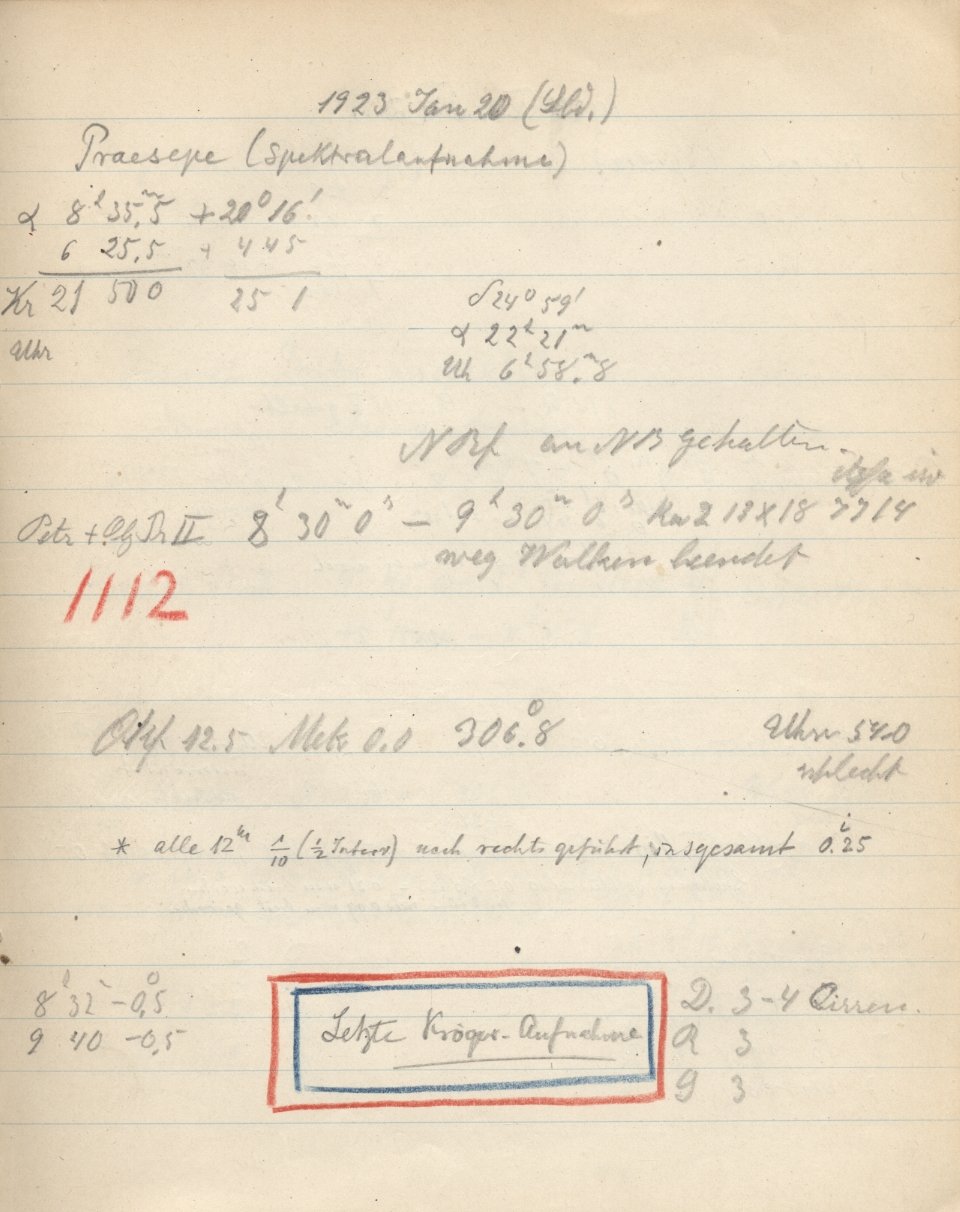 1923 Jan 20
Praesepe (Spektralaufnahme)
α 8ʰ 35,ᵐ5 + 20° 16'
6 25,5 + 4 45
Kr 21 50 0 25 1
Uhr
δ 24° 59'
α 22ʰ 21ᵐ
Uh 6ʰ 58.ᵐ8
an NB gehalten.
Petr + II 8ʰ 30ᵐ 0ˢ — 9ʰ 30ᵐ 0ˢ 7714
weg Wolken beendet
1112
12.5 0.0 306.°8
Uhr 540
schlecht
* alle 12ᵐ 1/10 (1/2 Interv) nach rechts geführt, insgesamt 0.ⁱ25
8ʰ 32 -0,°5
9 40 -0,5
Letzte Kröger-Aufnahme
D. 3-4 Cirren.
R 3
G 3